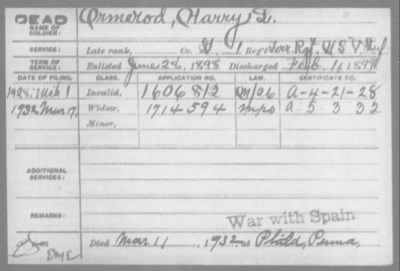 DEAD
NAME OF SOLDIER: Ormerod, Harry L.
SERVICE: Late rank, Co. 1 Reg't Terr. Rgt. U S V Inf
TERM OF SERVICE: Enlisted June 28, 1898 Discharged Feb. 11 1899
DATE OF FILING. CLASS. APPLICATION NO. LAW. CERTIFICATE NO.
1928. 1 Invalid, 1606812 A-4-21-28
1932 Mar 17, Widow, 1714594 A-5 3 32
Minor,
ADDITIONAL SERVICES:
REMARKS: War with Spain
Died Mar 11, 1932 at Phila, Penna,